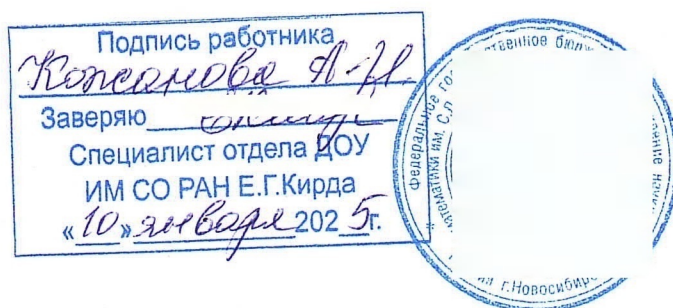 Подпись работника
Кожанова А.И.
Заверяю
Специалист отдела ДОУ
ИМ СО РАН Е.Г.Кирда
«10» января 2025г.
Федеральное гос
ственное бюдж
ение наук
математики им. С.Л
г.Новосибирс